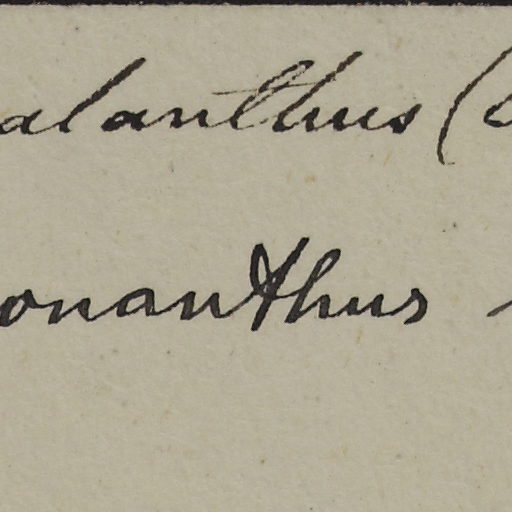 alanthus (
onanthus